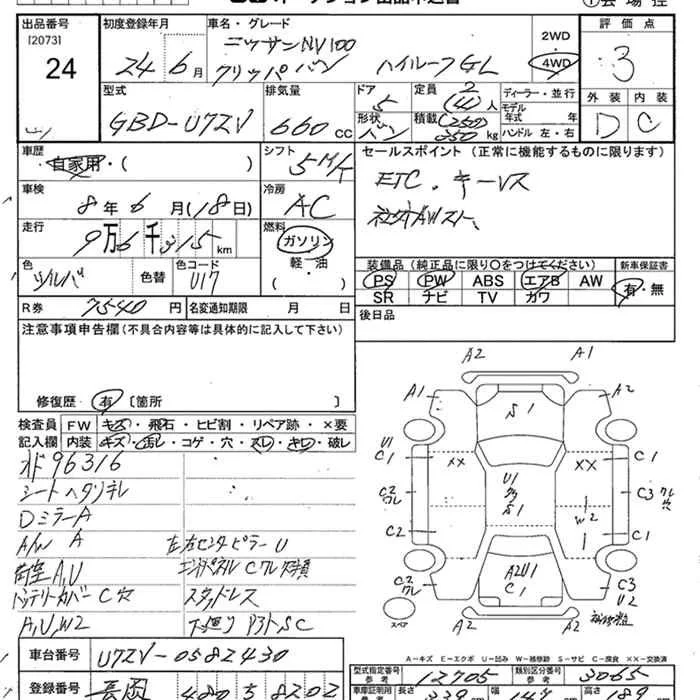 オークション出品申込書
会場控
出品番号
[2073]
24
初度登録年月
24 6 月
車名・グレード
ニッサンNV100
クリッパ バン ハイルーフGL
2WD
4WD
評価点
3
型式
GBD-U72V
排気量
660 cc
ドア
5
形状
バン
定員
2
(4)人
積載
(250)
350 kg
ディーラー・並行
モデル
年式 年
ハンドル 左・右
外装
D
内装
C
車歴
自家用・( )
シフト
5 M/T
車検
8年 6 月(18日)
冷房
AC
走行
9万6千315 km
燃料
ガソリン
(軽・油)
色
シルバ
色替
色コード
U17
R券
7540 円
名変通知期限 月 日
セールスポイント(正常に機能するものに限ります)
ETC. キーレス
社外AWスト、
装備品(純正品に限り○をつけてください)
PS PW ABS エアB AW
SR ナビ TV カワ
新車保証書
有・無
後日品
注意事項申告欄(不具合内容等は具体的に記入して下さい)
修復歴 有 〔箇所 〕
検査員
記入欄
FW キズ・飛石・ヒビ割・リペア跡・×要
内装 キズ・汚レ・コゲ・穴・スレ・キレ・破レ
オド96316
シートヘタリテレ
DミラーA
A/W A
左右センターピラーU
荷室A,U
エンドパネルCワレ
バッテリーカバーC穴
スタッドレス
A,U,W2
下廻り SC
A2 A1
A1 S1 A2
U1
C1 XX XX C1
C2
ワレ
U1
S1
C3 ワレ
穴
W2
C2 C1
C2
ワレ
A2U1
C1
C3
U2
スペア
A2 A2
A-キズ E-エクボ U-凹み W-補修跡 S-サビ C-腐食 XX-交換済
車台番号
U72V-0582430
登録番号
長岡 480 す 8202
型式指定番号
参考
12705
類別区分番号
参考
3065
車庫証明用
参考
長さ
339
幅
147
高さ
189